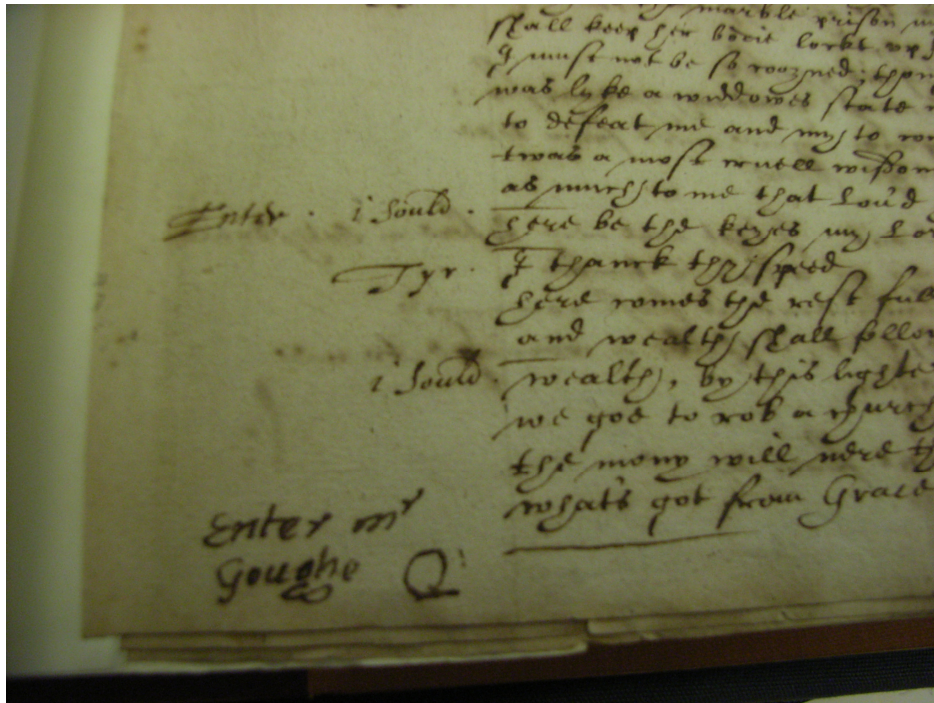 marble prison
shall keep her bodie lockt up
I must not be so coozned; thou
was lyke a widdowes state
to defeat me and my
twas a most cruell wisdom
as much to me that Lou'd
Enter . i Sould . here be the keyes my Lo
Tyr . I thanck thy speed
here comes the rest full
and wealth shall follow
i Sould . wealth, by this lighte
we goe to rob a church
the mony will nere th
whats got from Grave
Enter mr
Goughe Q